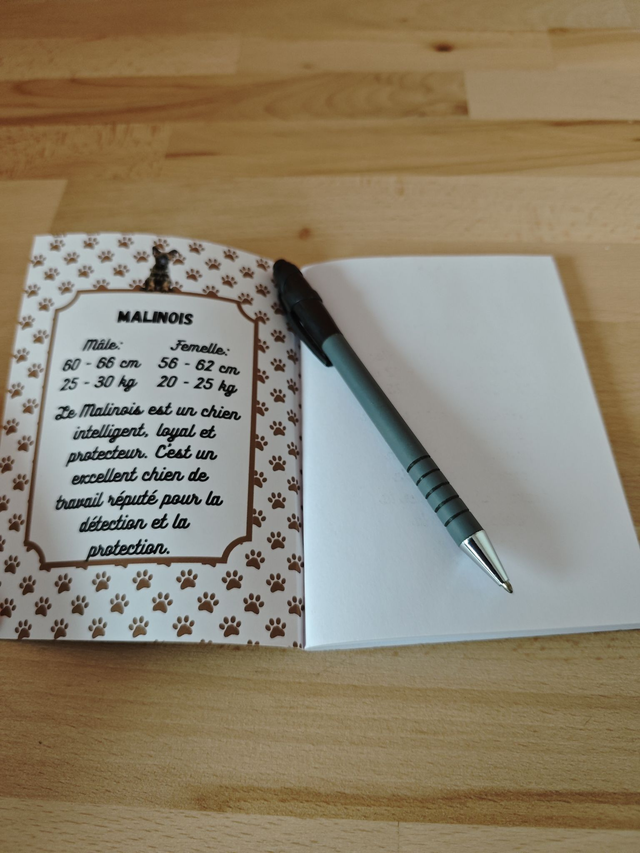 MALINOIS
Mâle: Femelle:
60 - 66 cm 56 - 62 cm
25 - 30 kg 20 - 25 kg
Le Malinois est un chien
intelligent, loyal et
protecteur. C'est un
excellent chien de
travail réputé pour la
détection et la
protection.